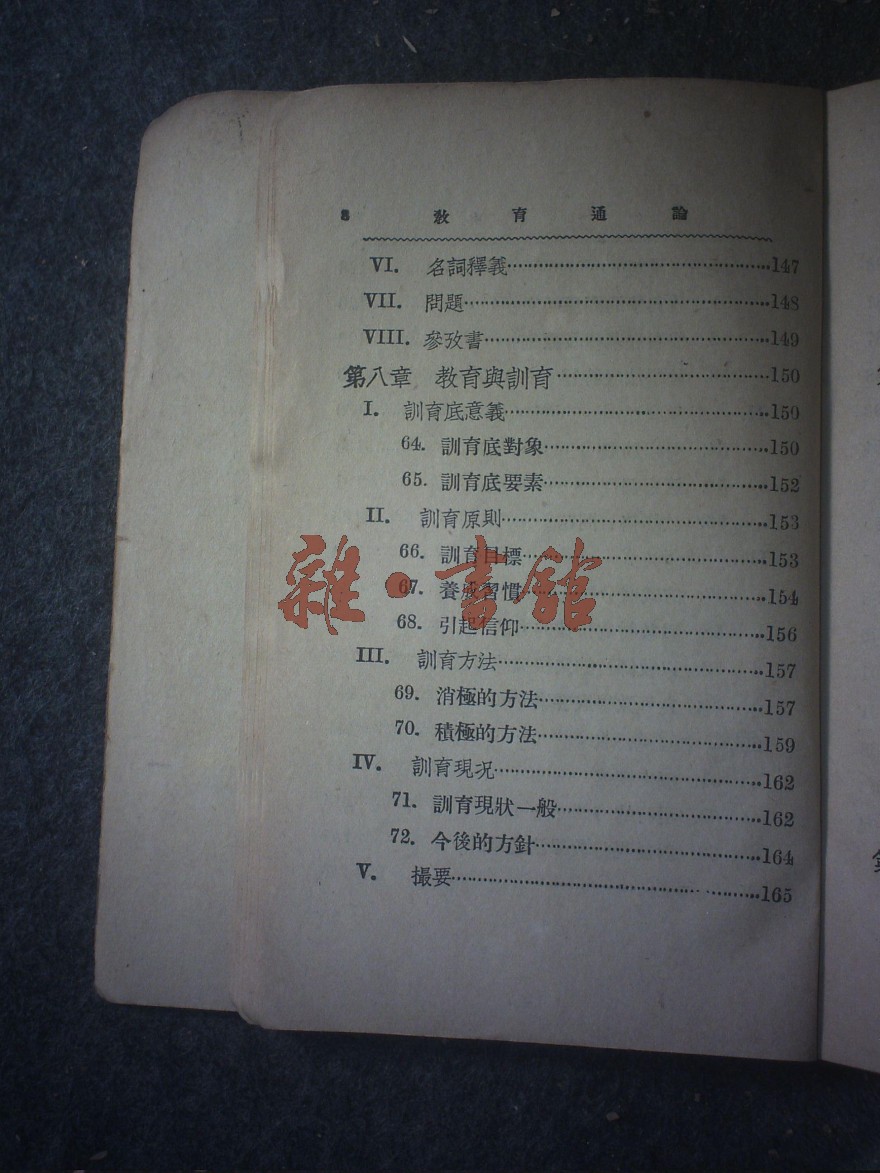 8 教育通論
VI. 名詞釋義 147
VII. 問題 148
VIII. 參攷書 149
第八章 教育與訓育 150
I. 訓育底意義 150
64. 訓育底對象 150
65. 訓育底要素 152
II. 訓育原則 153
66. 訓育目標 153
67. 養成習慣 154
68. 引起信仰 156
III. 訓育方法 157
69. 消極的方法 157
70. 積極的方法 159
IV. 訓育現况 162
71. 訓育現狀一般 162
72. 今後的方針 164
V. 撮要 165
雜·書館